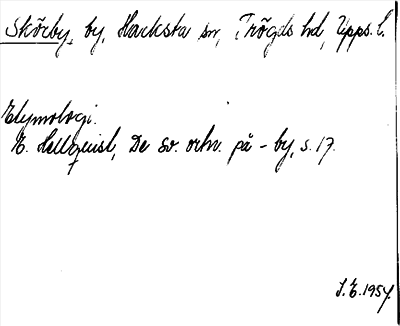 Skörby, by, Hacksta sn, Trögds hd, Upps. l.
Etymologi.
E. Hellquist, De sv. ortn. på -by, s. 17.
S.E. 1954.